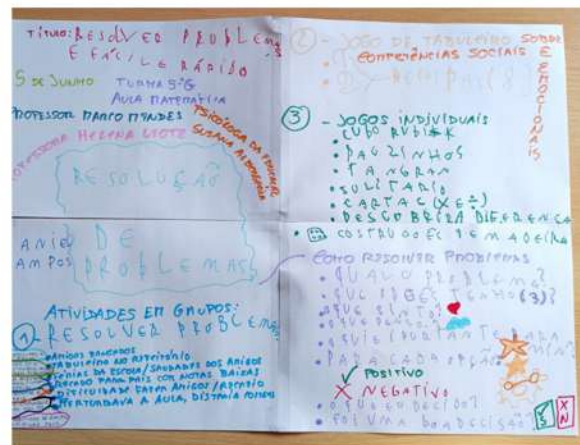 TÍTULO: RESOLVER PROBLEMAS
É FÁCIL E RÁPIDO
5 DE JUNHO TURMA 5ºG
AULA MATEMÁTICA
PROFESSOR MARCO MENDES
PROFESSORA HELENA
PSICÓLOGA DA
SUSANA
RESOLUÇAÕ
DE
PROBLEMAS
ANIE
AMPOS
ATIVIDADES EM GRUPOS:
1 - RESOLVER PROBLEMAS
AMIGOS ZANGADOS
TABULEIRO NO REFEITÓRIO
FÉRIAS DA ESCOLA/SAUDADES DOS AMIGOS
RECADO PARA PAIS COM NOTAS BAIXAS
DIFICULDADE FAZER AMIGOS/
PERTURBAVA A AULA,
2 - JOGO DE TABULEIRO SOBRE
COMPETÊNCIAS SOCIAIS E
EMOCIONAIS
3 - JOGOS INDIVIDUAIS
• CUBO RUBIK
• PAUZINHOS
• TANGRAN
• SULITARIO
• CARTAS (X E ÷)
• DESCOBRIR A DIFERENÇA
• COSTRUÇOES DE MADEIRA
COMO RESOLVER PROBLEMAS
• QUAL O PROBLEMA?
• QUE TENHO (3)?
• O QUE SINTO?
• O QUE PENSO?
IMPORTANTE PARA
MIM
• PARA CADA OPÇÃO
✓ POSITIVO
X NEGATIVO
• O QUE DECIDO?
• FOI UMA BOA DECISÃO?
S
X
N